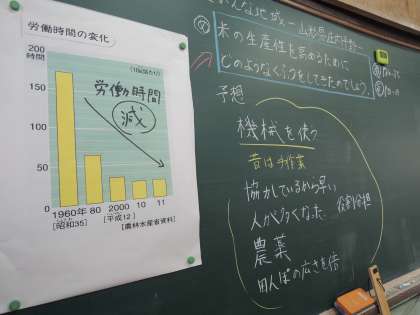 労働時間の変化
200
時間
150
100
50
0
労働時間
減
1960年 80 2000 10 11
[昭和35] [平成12]
[農林水産省資料]
米の生産性を高めるために
どのようなくふうをしてきたのでしょう。
予想
機械を使う
昔は手作業
協力しているから早い
人が多くなった 役割分担
農薬
田んぼの広さを倍